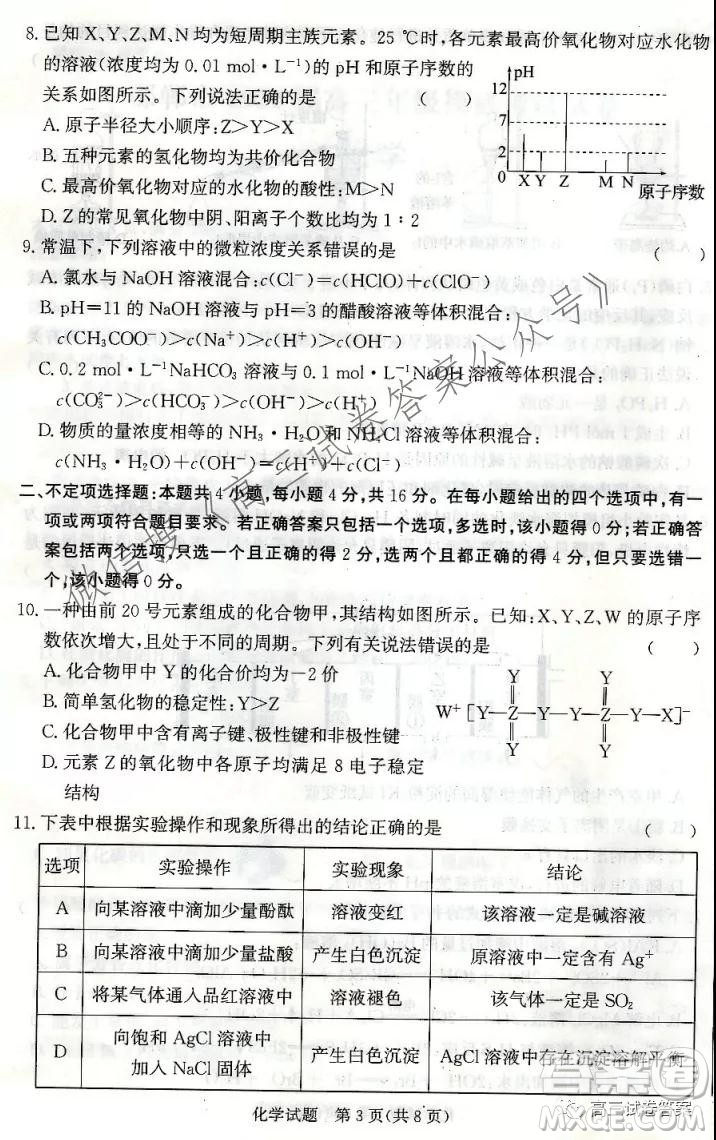 8. 已知 X、Y、Z、M、N 均为短周期主族元素。25 ℃时,各元素最高价氧化物对应水化物
的溶液(浓度均为 0.01 mol·L⁻¹)的 pH 和原子序数的
关系如图所示。下列说法正确的是 (    )
A. 原子半径大小顺序:Z>Y>X
B. 五种元素的氢化物均为共价化合物
C. 最高价氧化物对应的水化物的酸性:M>N
D. Z 的常见氧化物中阴、阳离子个数比均为 1∶2
pH
12
7
2
0 X Y Z M N
原子序数
9. 常温下,下列溶液中的微粒浓度关系错误的是 (    )
A. 氯水与 NaOH 溶液混合:c(Cl⁻)=c(HClO)+c(ClO⁻)
B. pH=11 的 NaOH 溶液与 pH=3 的醋酸溶液等体积混合:
c(CH₃COO⁻)>c(Na⁺)>c(H⁺)>c(OH⁻)
C. 0.2 mol·L⁻¹NaHCO₃ 溶液与 0.1 mol·L⁻¹NaOH 溶液等体积混合:
c(CO₃²⁻)>c(HCO₃⁻)>c(OH⁻)>c(H⁺)
D. 物质的量浓度相等的 NH₃·H₂O 和 NH₄Cl 溶液等体积混合:
c(NH₃·H₂O)+c(OH⁻)=c(H⁺)+c(Cl⁻)
二、不定项选择题:本题共 4 小题,每小题 4 分,共 16 分。在每小题给出的四个选项中,有一
项或两项符合题目要求。若正确答案只包括一个选项,多选时,该小题得 0 分;若正确答
案包括两个选项,只选一个且正确的得 2 分,选两个且都正确的得 4 分,但只要选错一
个,该小题得 0 分。
10. 一种由前 20 号元素组成的化合物甲,其结构如图所示。已知:X、Y、Z、W 的原子序
数依次增大,且处于不同的周期。下列有关说法错误的是 (    )
A. 化合物甲中 Y 的化合价均为-2 价
B. 简单氢化物的稳定性:Y>Z
C. 化合物甲中含有离子键、极性键和非极性键
D. 元素 Z 的氧化物中各原子均满足 8 电子稳定
结构
Y Y
W⁺[Y—Z—Y—Y—Z—Y—X]⁻
Y Y
11. 下表中根据实验操作和现象所得出的结论正确的是 (    )
选项 实验操作 实验现象 结论
A 向某溶液中滴加少量酚酞 溶液变红 该溶液一定是碱溶液
B 向某溶液中滴加少量盐酸 产生白色沉淀 原溶液中一定含有 Ag⁺
C 将某气体通入品红溶液中 溶液褪色 该气体一定是 SO₂
D 向饱和 AgCl 溶液中
加入 NaCl 固体 产生白色沉淀 AgCl 溶液中存在沉淀溶解平衡
化学试题 第 3 页(共 8 页)
微信搜《高三试卷答案公众号》
高三试卷答案